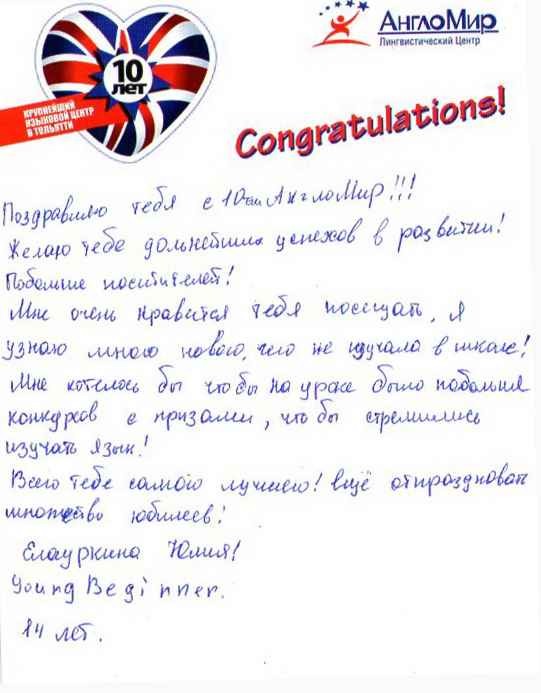 10
лет
КРУПНЕЙШИЙ
ЯЗЫКОВОЙ ЦЕНТР
В ТОЛЬЯТТИ
АнглоМир
Лингвистический Центр
Congratulations!
Поздравляю тебя с 10ти АнглоМир!!!
Желаю тебе дольнейших успехов в развитии!
Побольше поситителей!
Мне очень нравится тебя посещать, я
узнаю много нового, чего не изучала в школе!
Мне хотелось бы чтобы на уроке было побольше
конкурсов с призами, что бы стремились
изучать язык!
Всего тебе самого лучшего! ещё отпраздновать
множество юбилеев!
Юлия!
Young Beginner.
14 лет.